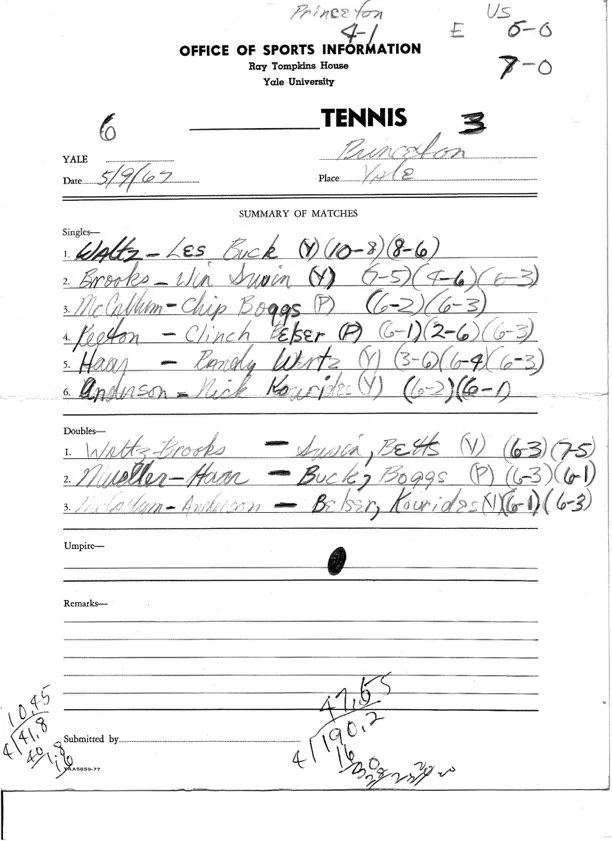 Princeton US
4-1 E 5-0
7-0
OFFICE OF SPORTS INFORMATION
Ray Tompkins House
Yale University
6 TENNIS 3
YALE Princeton
Date 5/9/67 Place Yale
SUMMARY OF MATCHES
Singles—
1. Waltz - Les Buck (Y) (10-8) (8-6)
2. Brooks - Win (Y) (7-5) (4-6) (6-3)
3. McCullum - Chip Boggs (P) (6-2) (6-3)
4. Keeton - Clinch Belser (P) (6-1) (2-6) (6-3)
5. Haar - Randy Wertz (Y) (3-6) (6-4) (6-3)
6. Anderson - Nick Kourides (Y) (6-2) (6-1)
Doubles—
1. Waltz-Brooks - Betts (Y) (6-3) (7-5)
2. Mueller-Haar - Buck, Boggs (P) (6-3) (6-1)
3. McCullum-Anderson - Belser, Kourides (Y) (6-1) (6-3)
Umpire—
Remarks—
10.45
4/41.8
40
1.8
16
47.55
4/190.2
16
30
28
Submitted by